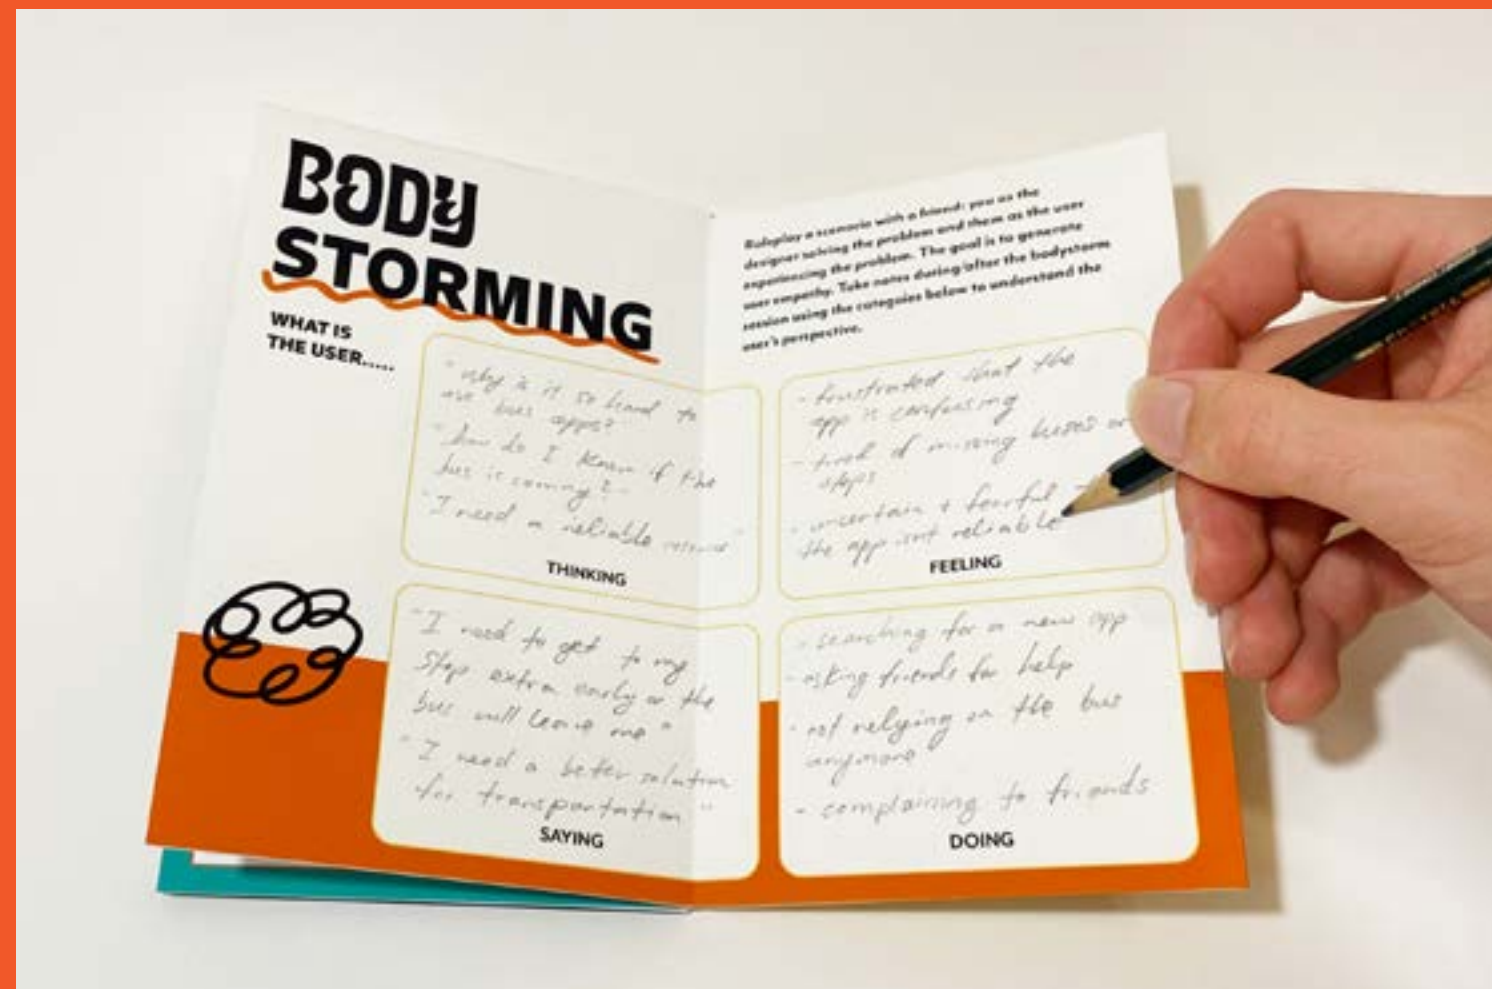 BODY
STORMING
WHAT IS
THE USER.....
Roleplay a scenario with a friend: you as the
designer solving the problem and them as the user
experiencing the problem. The goal is to generate
user empathy. Take notes during/after the bodystorm
session using the categories below to understand the
user's perspective.
"why is it so hard to
use bus apps?"
"how do I know if the
bus is coming?"
"I need a reliable
THINKING
- frustrated that the
app is confusing
- tired of missing buses or
stops
- uncertain + fearful -
the app isnt reliable
FEELING
"I need to get to my
stop extra early or the
bus will leave me"
"I need a better solution
for transportation"
SAYING
- searching for a new app
- asking friends for help
- not relying on the bus
anymore
- complaining to friends
DOING